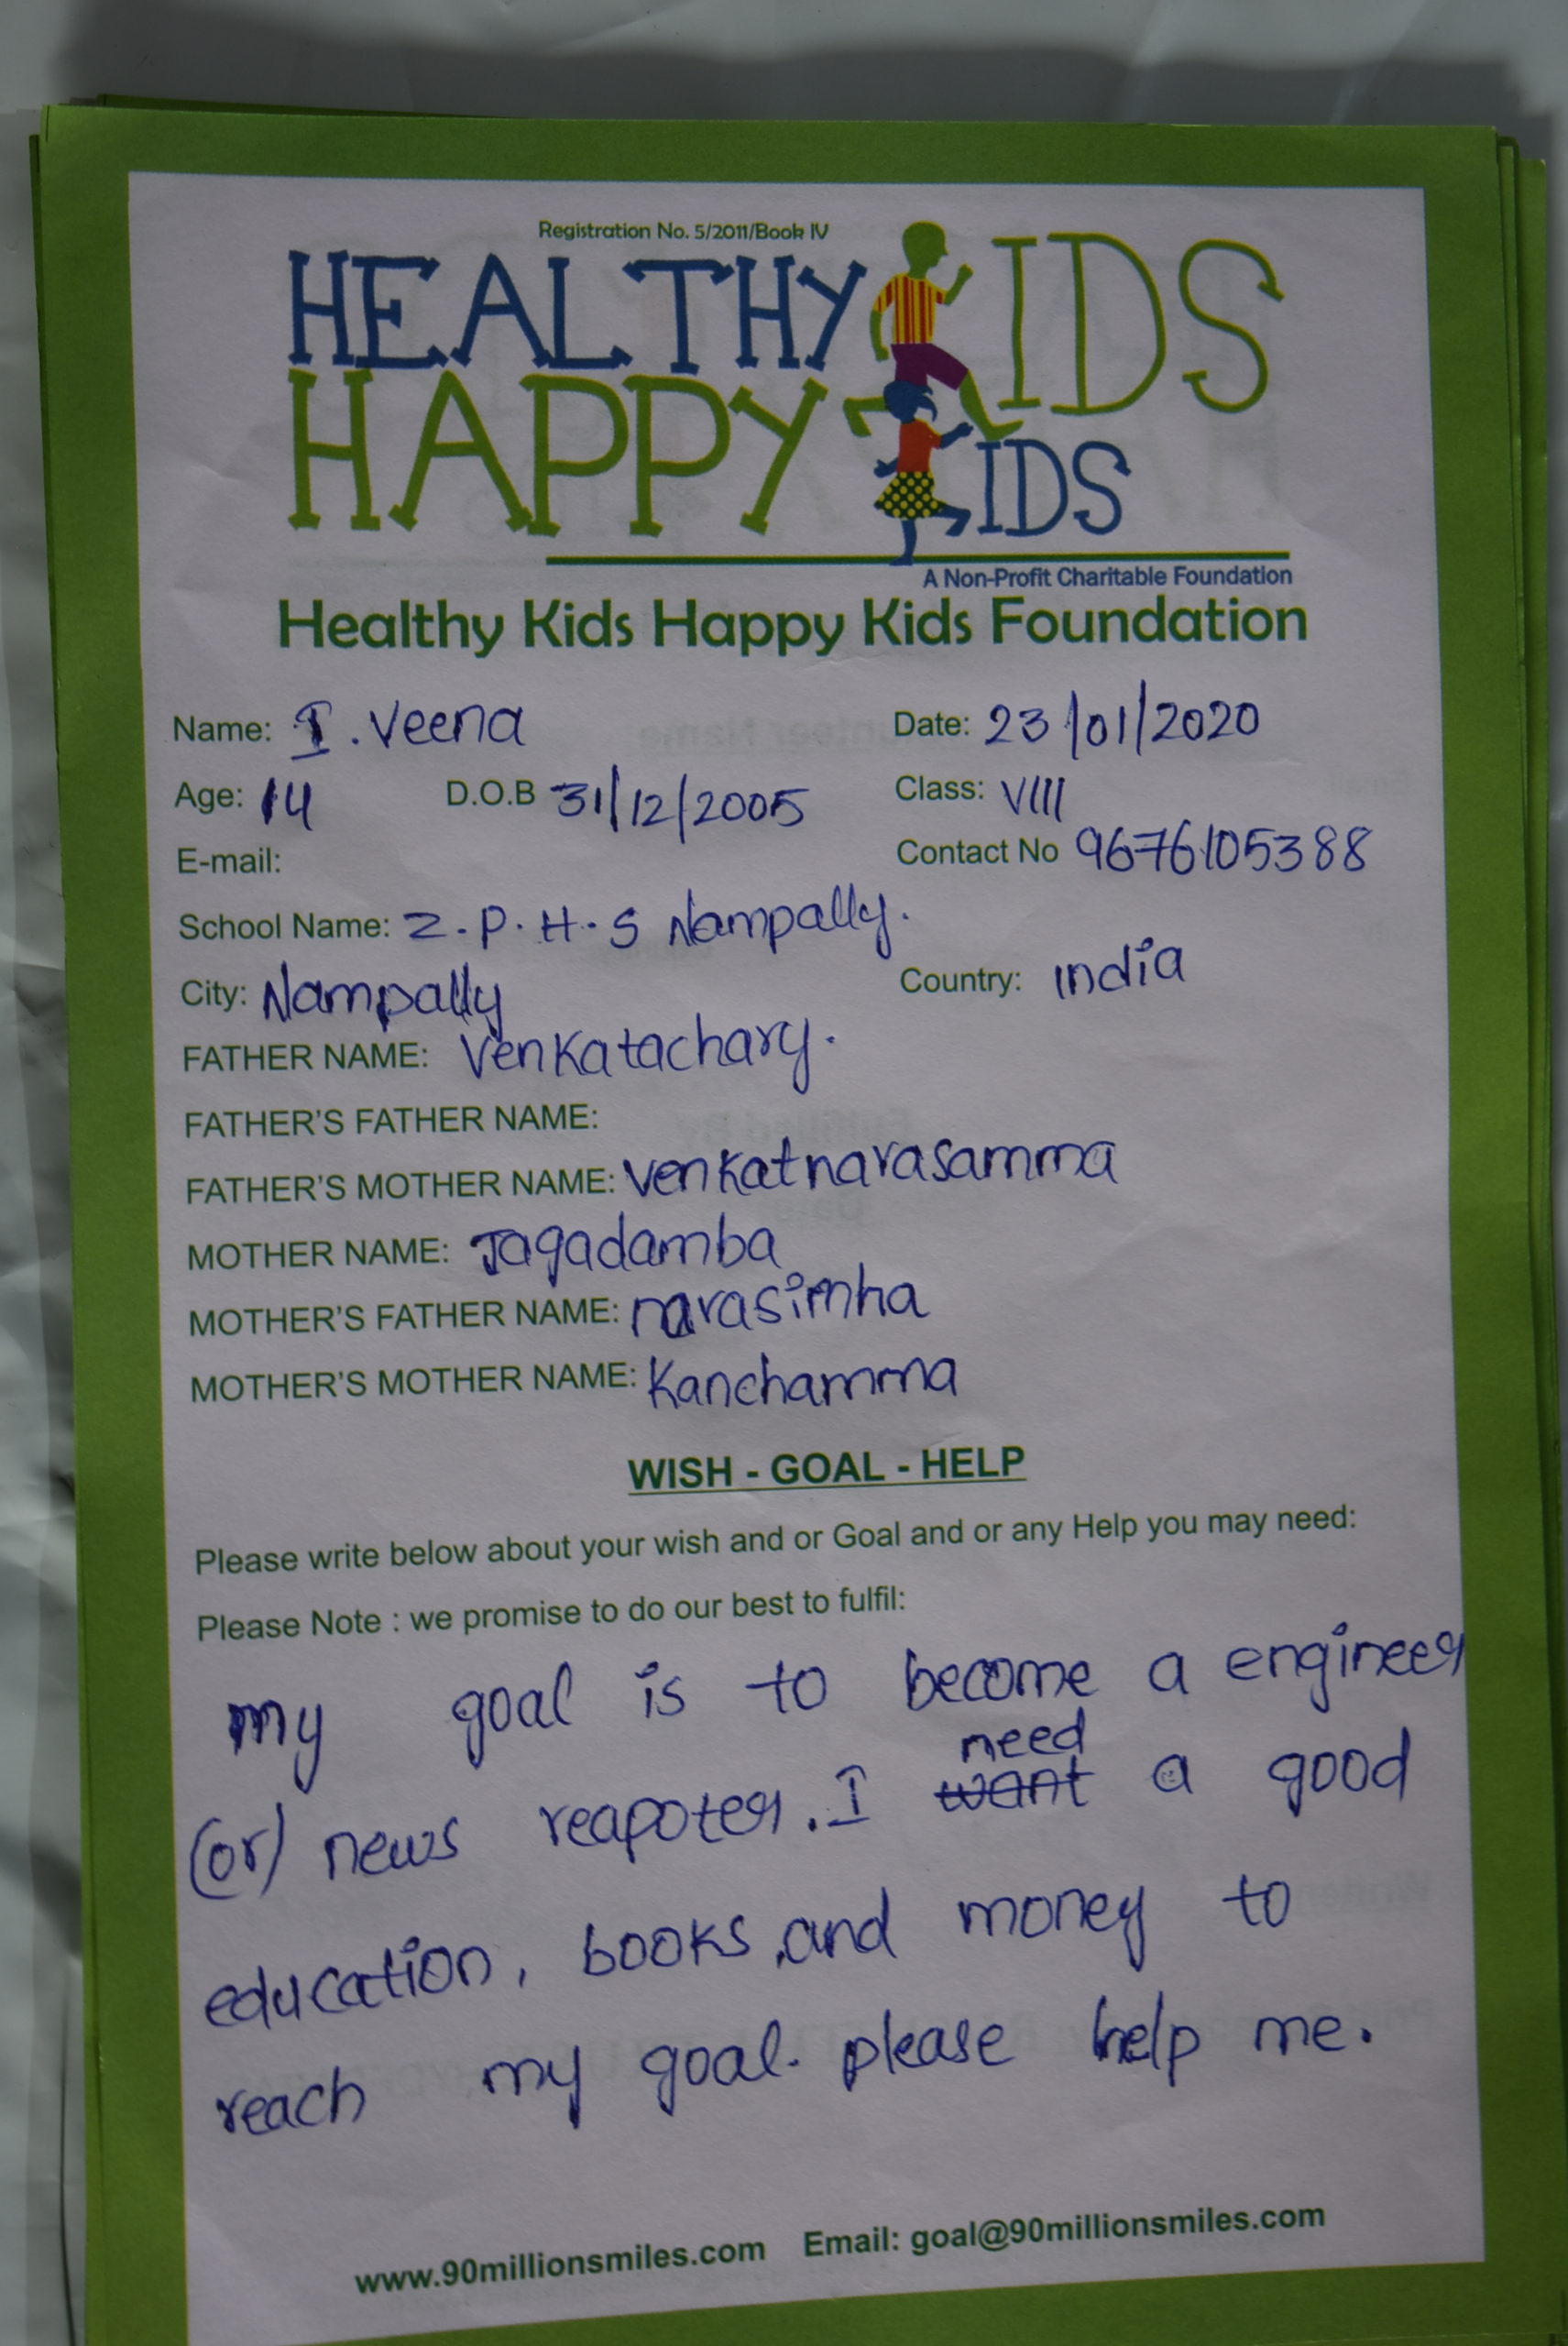 Registration No. 5/2011/Book IV
HEALTHY KIDS
HAPPY KIDS
A Non-Profit Charitable Foundation
Healthy Kids Happy Kids Foundation
Name: I. Veena Date: 23/01/2020
Age: 14 D.O.B 31/12/2005 Class: VIII
E-mail: Contact No 9676105388
School Name: Z.P.H.S Nampally.
City: Nampally Country: India
FATHER NAME: Venkatachary.
FATHER'S FATHER NAME:
FATHER'S MOTHER NAME: Venkatnarasamma
MOTHER NAME: Jagadamba
MOTHER'S FATHER NAME: narasimha
MOTHER'S MOTHER NAME: Kanchamma
WISH - GOAL - HELP
Please write below about your wish and or Goal and or any Help you may need:
Please Note : we promise to do our best to fulfil:
my goal is to become a engineer
(or) news reapoter. I want need a good
education, books, and money to
reach my goal. please help me.
www.90millionsmiles.com Email: goal@90millionsmiles.com